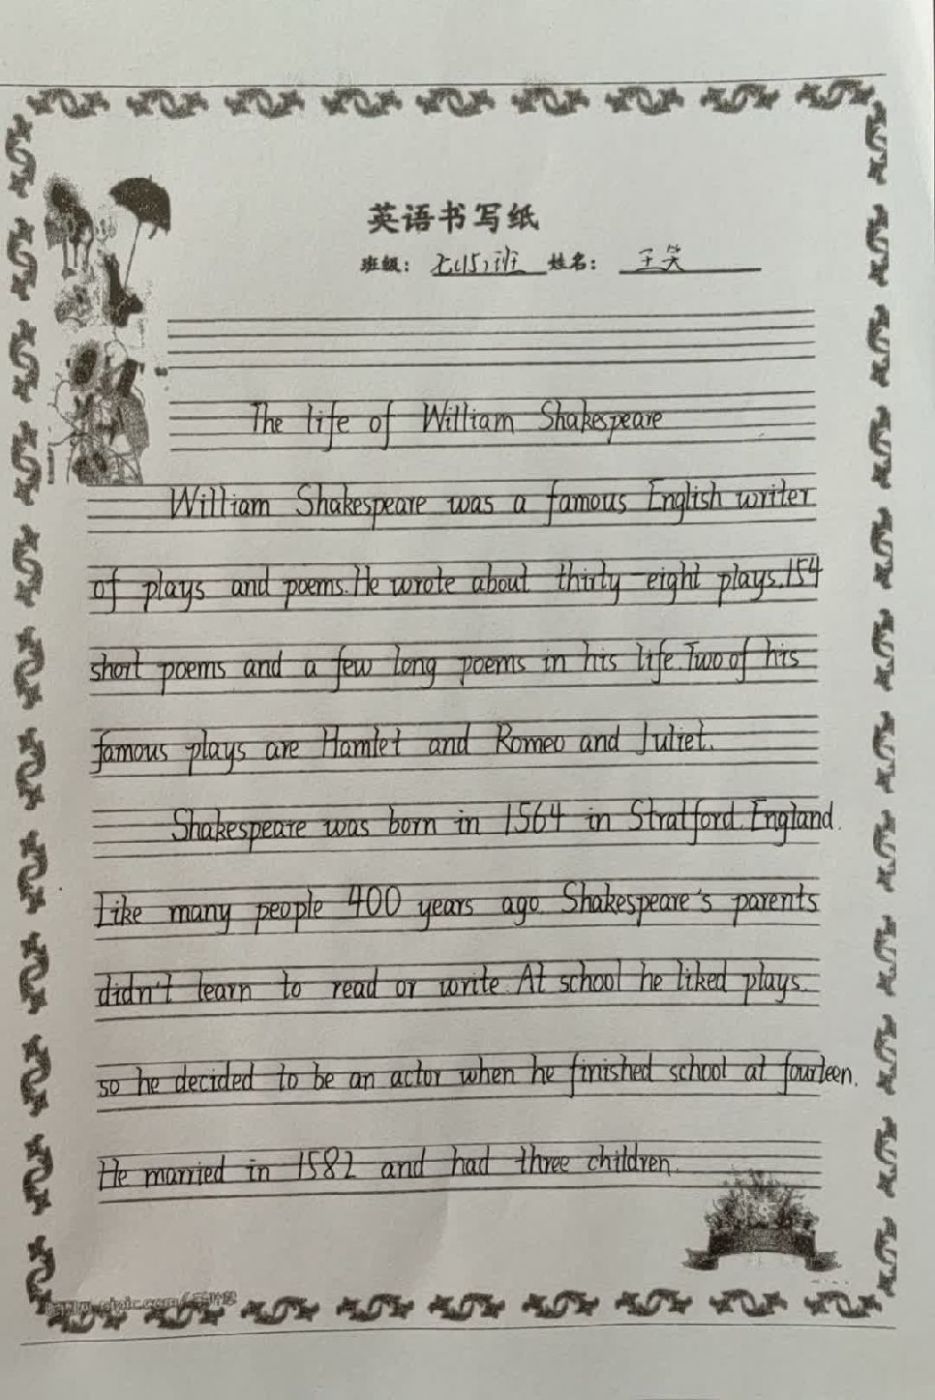 英语书写纸
班级: 七(15)班 姓名: 王笑
The life of William Shakespeare
William Shakespeare was a famous English writer
of plays and poems. He wrote about thirty-eight plays. 154
short poems and a few long poems in his life. Two of his
famous plays are Hamlet and Romeo and Juliet.
Shakespeare was born in 1564 in Stratford. England.
Like many people 400 years ago. Shakespeare's parents
didn't learn to read or write. At school he liked plays.
so he decided to be an actor when he finished school at fourteen.
He married in 1582 and had three children.